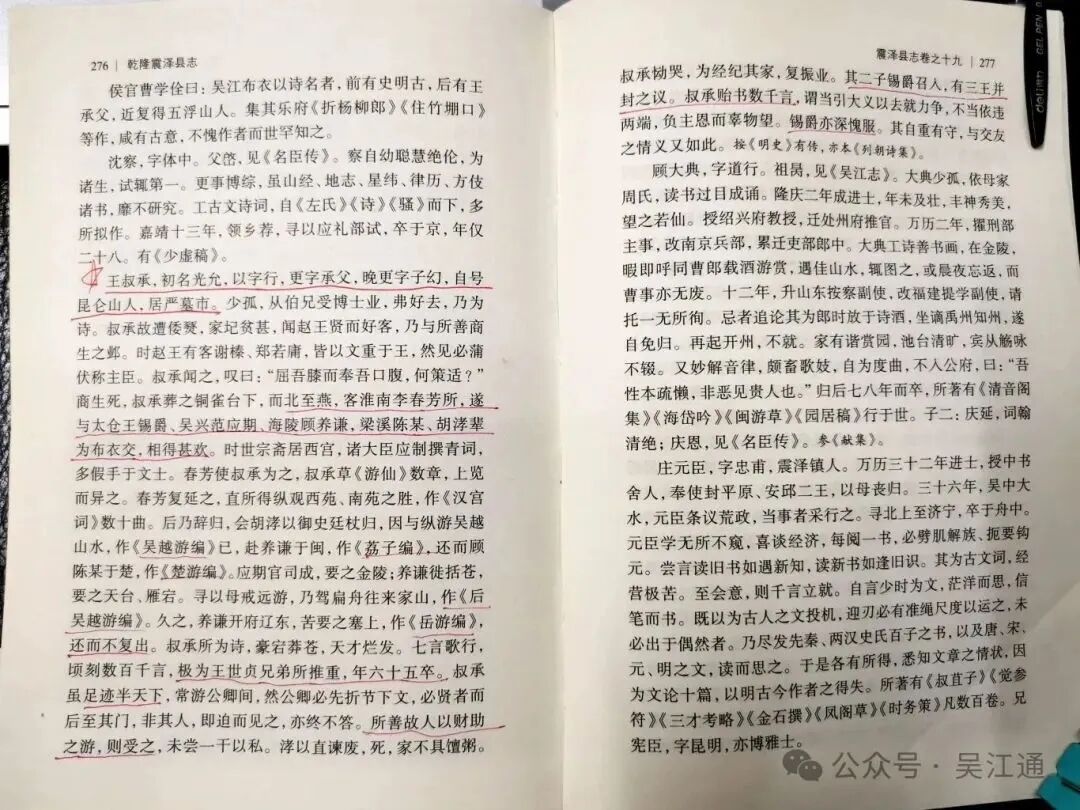 276 | 乾隆震泽县志
侯官曹学佺曰：吴江布衣以诗名者，前有史明古，后有王
承父，近复得五浮山人。集其乐府《折杨柳郎》《住竹堋口》
等作，咸有古意，不愧作者而世罕知之。
沈察，字体中。父啓，见《名臣传》。察自幼聪慧绝伦，为
诸生，试辄第一。更事博综，虽山经、地志、星纬、律历、方伎
诸书，靡不研究。工古文诗词，自《左氏》《诗》《骚》而下，多
所拟作。嘉靖十三年，领乡荐，寻以应礼部试，卒于京，年仅
二十八。有《少虚稿》。
王叔承，初名光允，以字行，更字承父，晚更字子幻，自号
昆仑山人，居严墓市。少孤，从伯兄受博士业，弗好去，乃为
诗。叔承故遭倭燹，家圮贫甚，闻赵王贤而好客，乃与所善商
生之邺。时赵王有客谢榛、郑若庸，皆以文重于王，然见必蒲
伏称主臣。叔承闻之，叹曰：“屈吾膝而奉吾口腹，何策适？”
商生死，叔承葬之铜雀台下，而北至燕，客淮南李春芳所，遂
与太仓王锡爵、吴兴范应期、海陵顾养谦，梁溪陈某、胡涍辈
为布衣交，相得甚欢。时世宗斋居西宫，诸大臣应制撰青词，
多假手于文士。春芳使叔承为之，叔承草《游仙》数章，上览
而异之。春芳复延之，直所得纵观西苑、南苑之胜，作《汉宫
词》数十曲。后乃辞归，会胡涍以御史廷杖归，因与纵游吴越
山水，作《吴越游编》已，赴养谦于闽，作《荔子编》，还而顾
陈某于楚，作《楚游编》。应期官司成，要之金陵；养谦徙括苍，
要之天台、雁宕。寻以母戒远游，乃驾扁舟往来家山，作《后
吴越游编》。久之，养谦开府辽东，苦要之塞上，作《岳游编》，
还而不复出。叔承所为诗，豪宕莽苍，天才烂发。七言歌行，
顷刻数百千言，极为王世贞兄弟所推重，年六十五卒。叔承
虽足迹半天下，常游公卿间，然公卿必先折节下文，必贤者而
后至其门，非其人，即迫而见之，亦终不答。所善故人以财助
之游，则受之，未尝一干以私。涍以直谏废，死，家不具饘粥。
震泽县志卷之十九 | 277
叔承恸哭，为经纪其家，复振业。其二子锡爵召人，有三王并
封之议。叔承贻书数千言，谓当引大义以去就力争，不当依违
两端，负主恩而辜物望。锡爵亦深愧服。其自重有守，与交友
之情义又如此。按《明史》有传，亦本《列朝诗集》。
顾大典，字道行。祖昺，见《吴江志》。大典少孤，依母家
周氏，读书过目成诵。隆庆二年成进士，年未及壮，丰神秀美，
望之若仙。授绍兴府教授，迁处州府推官。万历二年，擢刑部
主事，改南京兵部，累迁吏部郎中。大典工诗善书画，在金陵，
暇即呼同曹郎载酒游赏，遇佳山水，辄图之，或晨夜忘返，而
曹事亦无废。十二年，升山东按察副使，改福建提学副使，请
托一无所徇。忌者追论其为郎时放于诗酒，坐谪禹州知州，遂
自免归。再起开州，不就。家有谐赏园，池台清旷，宾从觞咏
不辍。又妙解音律，颇畜歌妓，自为度曲，不入公府，曰：“吾
性本疏懒，非恶见贵人也。”归后七八年而卒，所著有《清音阁
集》《海岱吟》《闽游草》《园居稿》行于世。子二：庆延，词翰
清绝；庆恩，见《名臣传》。参《献集》。
庄元臣，字忠甫，震泽镇人。万历三十二年进士，授中书
舍人，奉使封平原、安邱二王，以母丧归。三十六年，吴中大
水，元臣条议荒政，当事者采行之。寻北上至济宁，卒于舟中。
元臣学无所不窥，喜谈经济，每阅一书，必劈肌解族、扼要钩
元。尝言读旧书如遇新知，读新书如逢旧识。其为古文词，经
营极苦。至会意，则千言立就。自言少时为文，茫洋而思，信
笔而书。既以为古人之文投机，迎刃必有准绳尺度以运之，未
必出于偶然者。乃尽发先秦、两汉史氏百子之书，以及唐、宋、
元、明之文，读而思之。于是各有所得，悉知文章之情状，因
为文论十篇，以明古今作者之得失。所著有《叔苴子》《觉参
符》《三才考略》《金石撰》《凤阁草》《时务策》凡数百卷。兄
宪臣，字昆明，亦博雅士。
公众号·吴江通